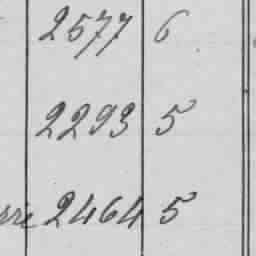 2577 6
2293 5
2464 5